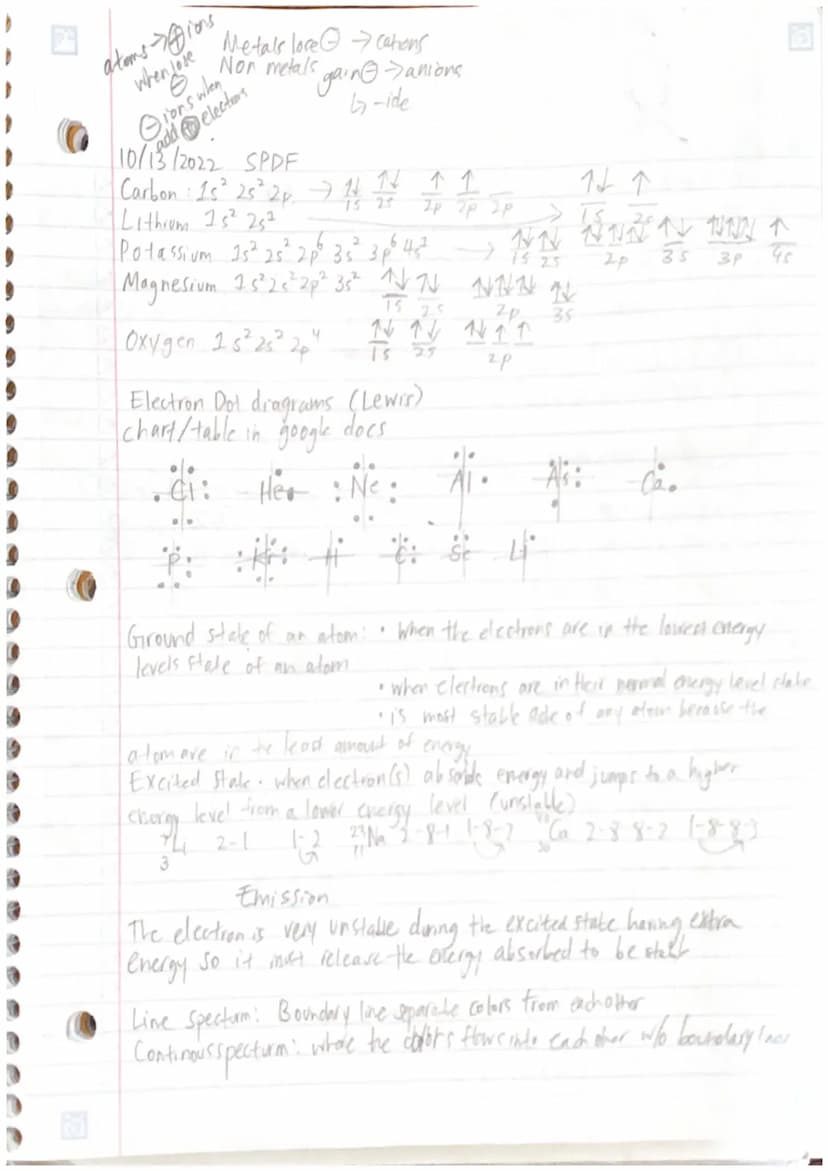 atoms → ⊕ ions
when lose
⊖
⊖ ions when
add ⊕ electrons
Metals lose ⊖ → cations
Non metals gain ⊖ → anions
↳ -ide
10/13/2022 SPDF
Carbon : 1s² 2s² 2p → ↑↓ ↑↓ ↑ ↑
1s 2s 2p 2p 2p
Lithium 1s² 2s² → ↑↓ ↑
1s 2s
Potassium 1s² 2s² 2p⁶ 3s² 3p⁶ 4s¹ → ↑↓ ↑↓ ↑↓↑↓↑↓ ↑↓ ↑↓↑↓↑↓ ↑
1s 2s 2p 3s 3p 4s
Magnesium 1s² 2s² 2p² 3s² ↑↓ ↑↓ ↑↓↑↓↑↓ ↑↓
1s 2s 2p 3s
Oxygen 1s² 2s² 2p⁴ ↑↓ ↑↓ ↑↓ ↑ ↑
1s 2s 2p
Electron Dot diagrams (Lewis)
chart/table in google docs
Cl He Ne Al As Ca
P Kr H C Se Li
Ground state of an atom: • when the electrons are in the lowest energy
levels state of an atom
• when electrons are in their normal energy level state
• is most stable of any atom because the
atom are in the least amount of energy
Excited State • when electron(s) absorbe energy and jumps to a higher
energy level from a lower energy level (unstable)
⁷₃Li 2-1 1-2 ²³₁₁Na 2-8-1 1-8-2 Ca 2-8 8-2 1-8-8-3
Emission
The electron is very unstable during the excited state having extra
energy so it must release the energy absorbed to be stable
Line spectrum: Boundary line separate colors from eachother
Continous specturm: where the colors flows into each other w/o boundary lines